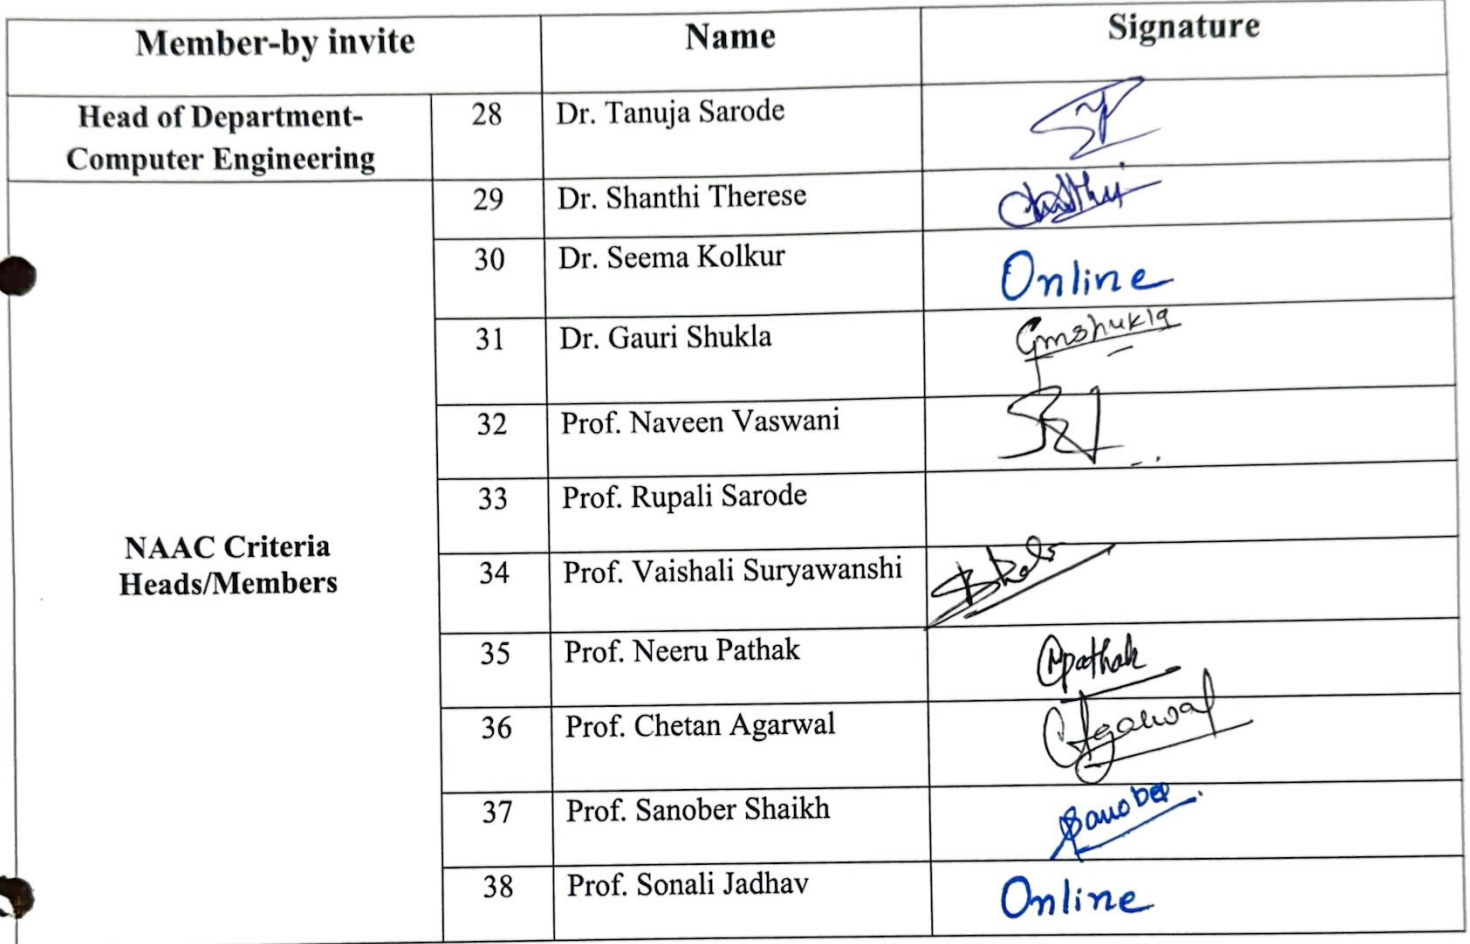 Member-by invite Name Signature
Head of Department-
Computer Engineering
28 Dr. Tanuja Sarode
29 Dr. Shanthi Therese
30 Dr. Seema Kolkur Online
31 Dr. Gauri Shukla Gmshukla
32 Prof. Naveen Vaswani
33 Prof. Rupali Sarode
NAAC Criteria
Heads/Members
34 Prof. Vaishali Suryawanshi
35 Prof. Neeru Pathak Npathak
36 Prof. Chetan Agarwal CAgarwal
37 Prof. Sanober Shaikh Sanober
38 Prof. Sonali Jadhav Online